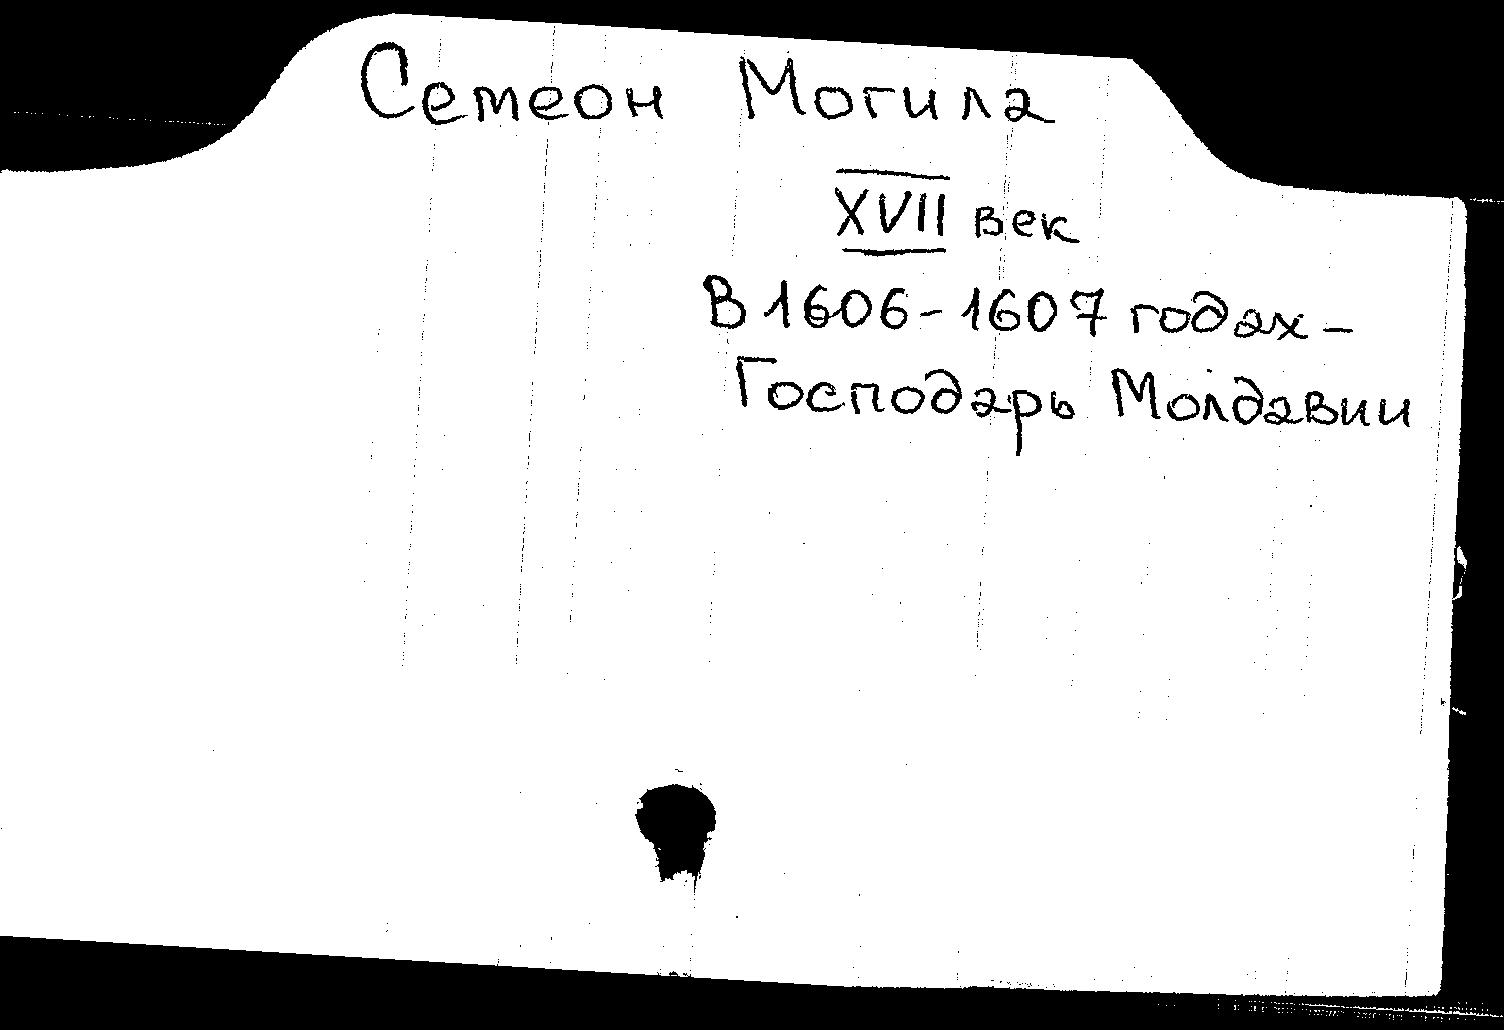 Семеон Могила
XVII век
В 1606-1607 годах -
Господарь Молдавии